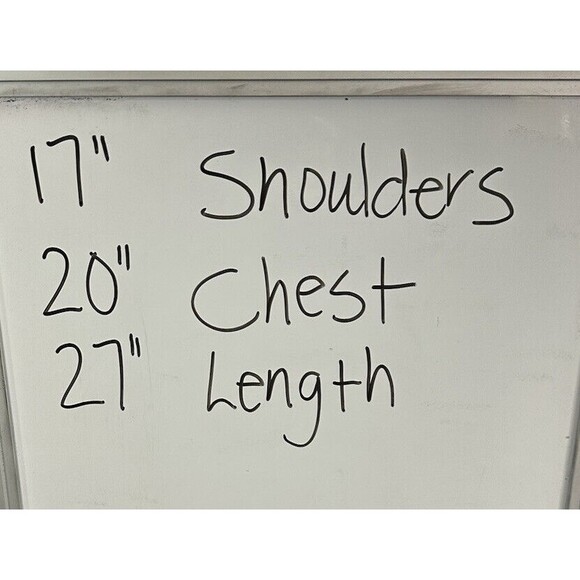 17" Shoulders
20" Chest
27" Length